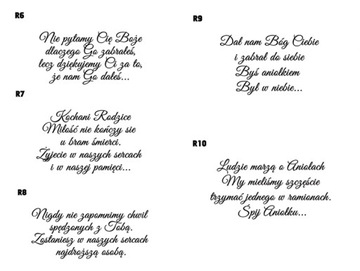 R6
Nie pytamy Cię Boże
dlaczego Go zabrałeś,
lecz dziękujemy Ci za to,
że nam Go dałeś...
R7
Kochani Rodzice
Miłość nie kończy się
u bram śmierci.
Żyjecie w naszych sercach
i w naszej pamięci...
R8
Nigdy nie zapomnimy chwil
spędzonych z Tobą.
Zostaniesz w naszych sercach
najdroższą osobą.
R9
Dał nam Bóg Ciebie
i zabrał do siebie
Byś aniołkiem
Był w niebie...
R10
Ludzie marzą o Aniołach
My mieliśmy szczęście
trzymać jednego w ramionach.
Śpij Aniołku...